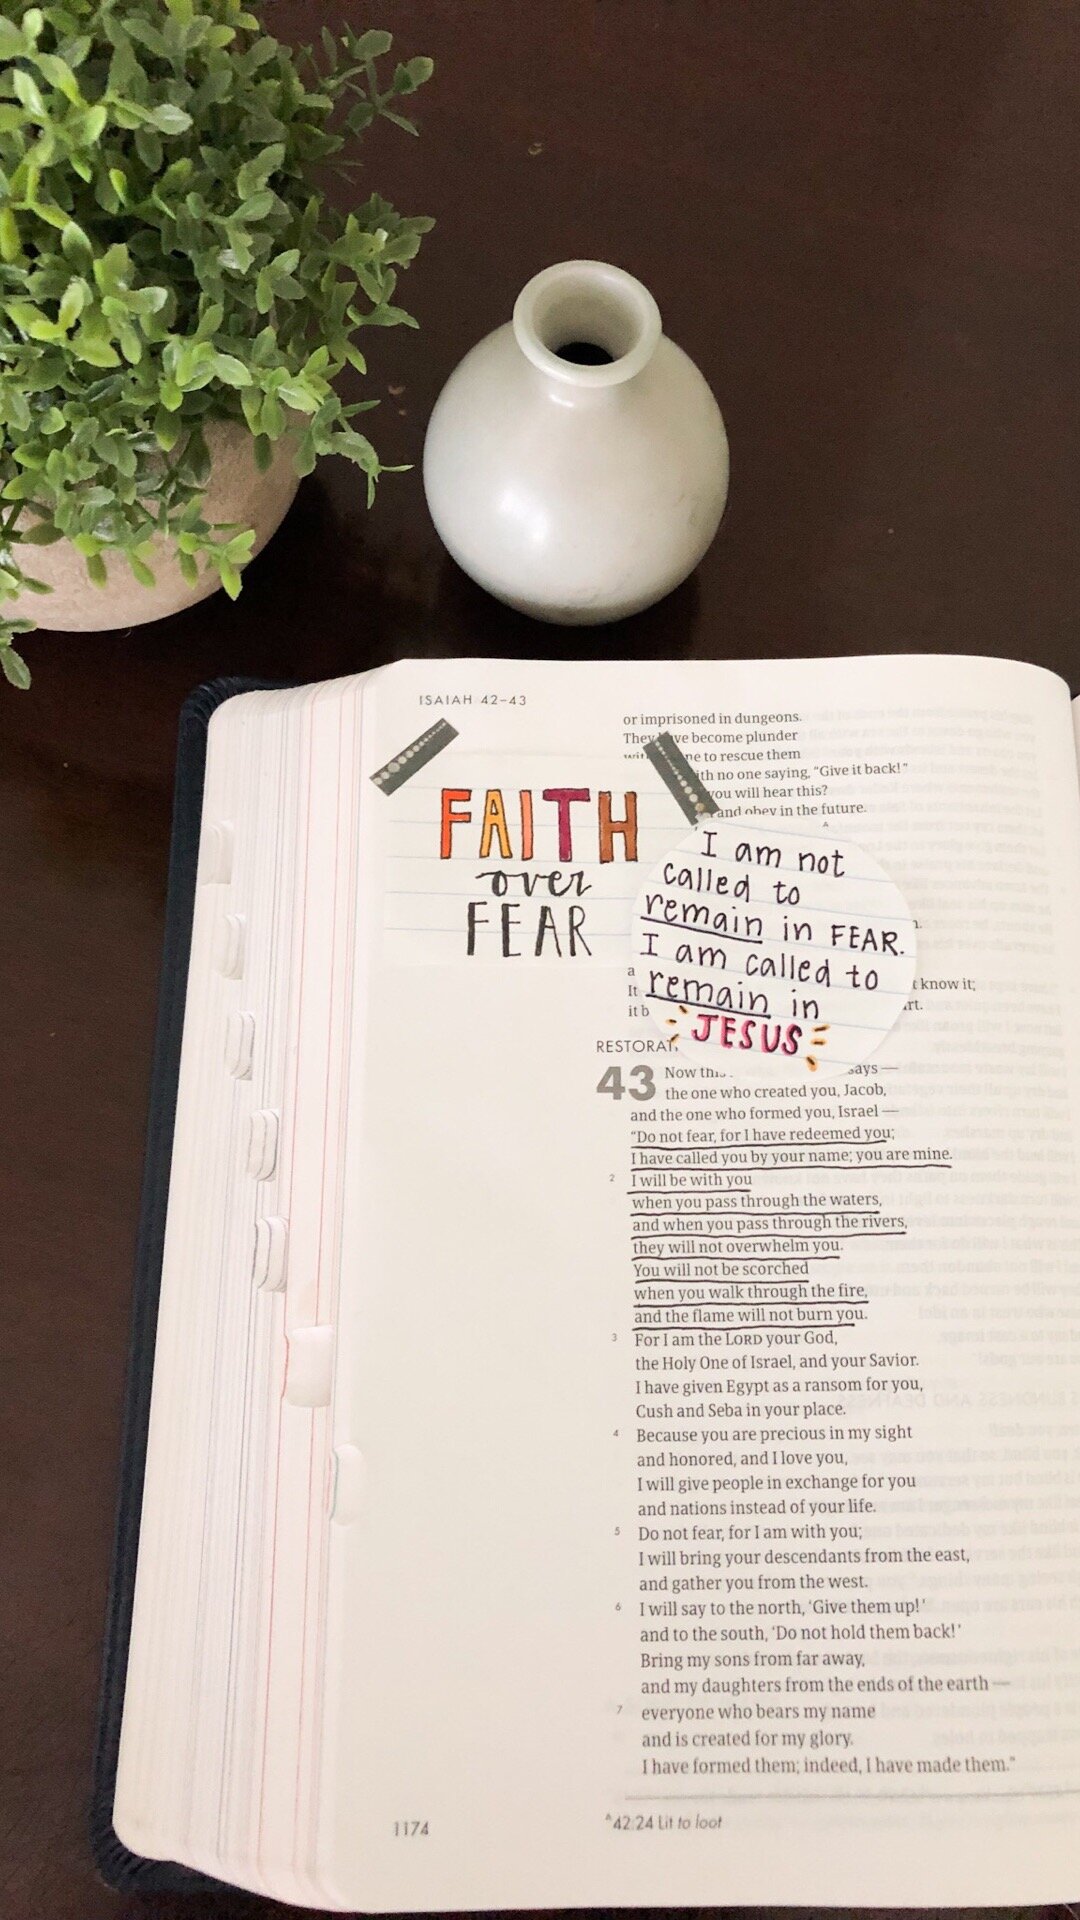 ISAIAH 42–43
FAITH
over
FEAR
or imprisoned in dungeons.
They have become plunder
ne to rescue them
with no one saying, “Give it back!”
you will hear this?
and obey in the future.
I am not
called to
remain in FEAR.
I am called to
remain in
JESUS
a
It know it;
it b
RESTORAT
43 Now this says —
the one who created you, Jacob,
and the one who formed you, Israel —
“Do not fear, for I have redeemed you;
I have called you by your name; you are mine.
2 I will be with you
when you pass through the waters,
and when you pass through the rivers,
they will not overwhelm you.
You will not be scorched
when you walk through the fire,
and the flame will not burn you.
3 For I am the LORD your God,
the Holy One of Israel, and your Savior.
I have given Egypt as a ransom for you,
Cush and Seba in your place.
4 Because you are precious in my sight
and honored, and I love you,
I will give people in exchange for you
and nations instead of your life.
5 Do not fear, for I am with you;
I will bring your descendants from the east,
and gather you from the west.
6 I will say to the north, ‘Give them up!’
and to the south, ‘Do not hold them back!’
Bring my sons from far away,
and my daughters from the ends of the earth —
7 everyone who bears my name
and is created for my glory.
I have formed them; indeed, I have made them.”
1174
A 42:24 Lit to loot